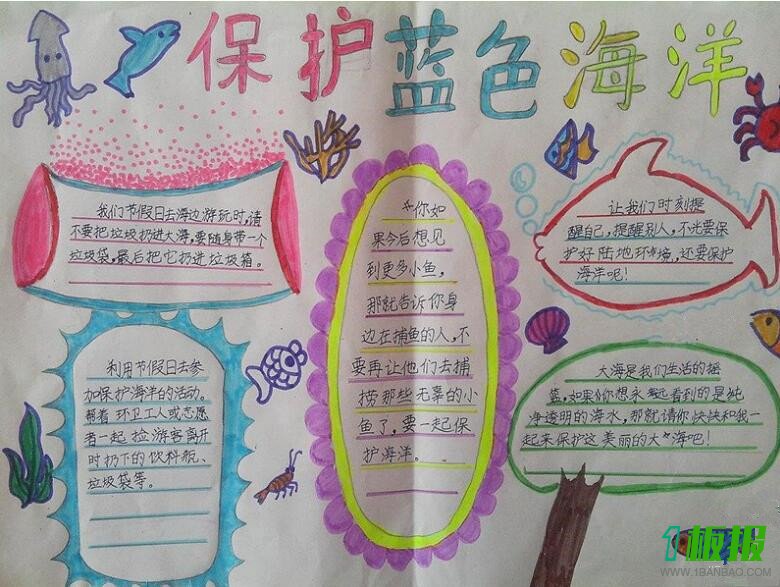 保护蓝色海洋
我们节假日去海边游玩时,请
不要把垃圾扔进大海,要随身带一个
垃圾袋,最后把它扔进垃圾箱。
利用节假日去参
加保护海洋的活动。
帮着环卫工人或志愿
者一起捡游客离开
时扔下的饮料瓶、
垃圾袋等。
你如
果今后想见
到更多小鱼,
那就告诉你身
边在捕鱼的人,不
要再让他们去捕
捞那些无辜的小
鱼了,要一起保
护海洋。
让我们时刻提
醒自己,提醒别人,不光要保
护好陆地环境,还要保护
海洋呢!
大海是我们生活的摇
蓝,如果你想永远看到的是纯
净透明的海水,那就请你快快和我一
起来保护这美丽的大海吧!
1板报
WWW.1BANBAO.COM